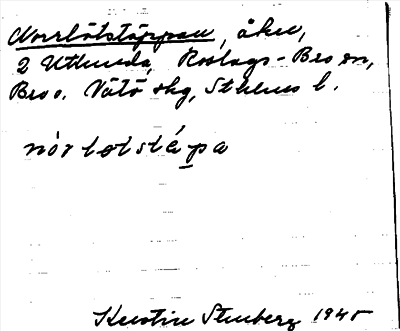 Norrlötstäppan, åker,
2 Utlunda, Roslags-Bro sn,
Bro o. Vätö skg, Sthlms l.
nòrlotstépa
Kerstin Stenberg 1945